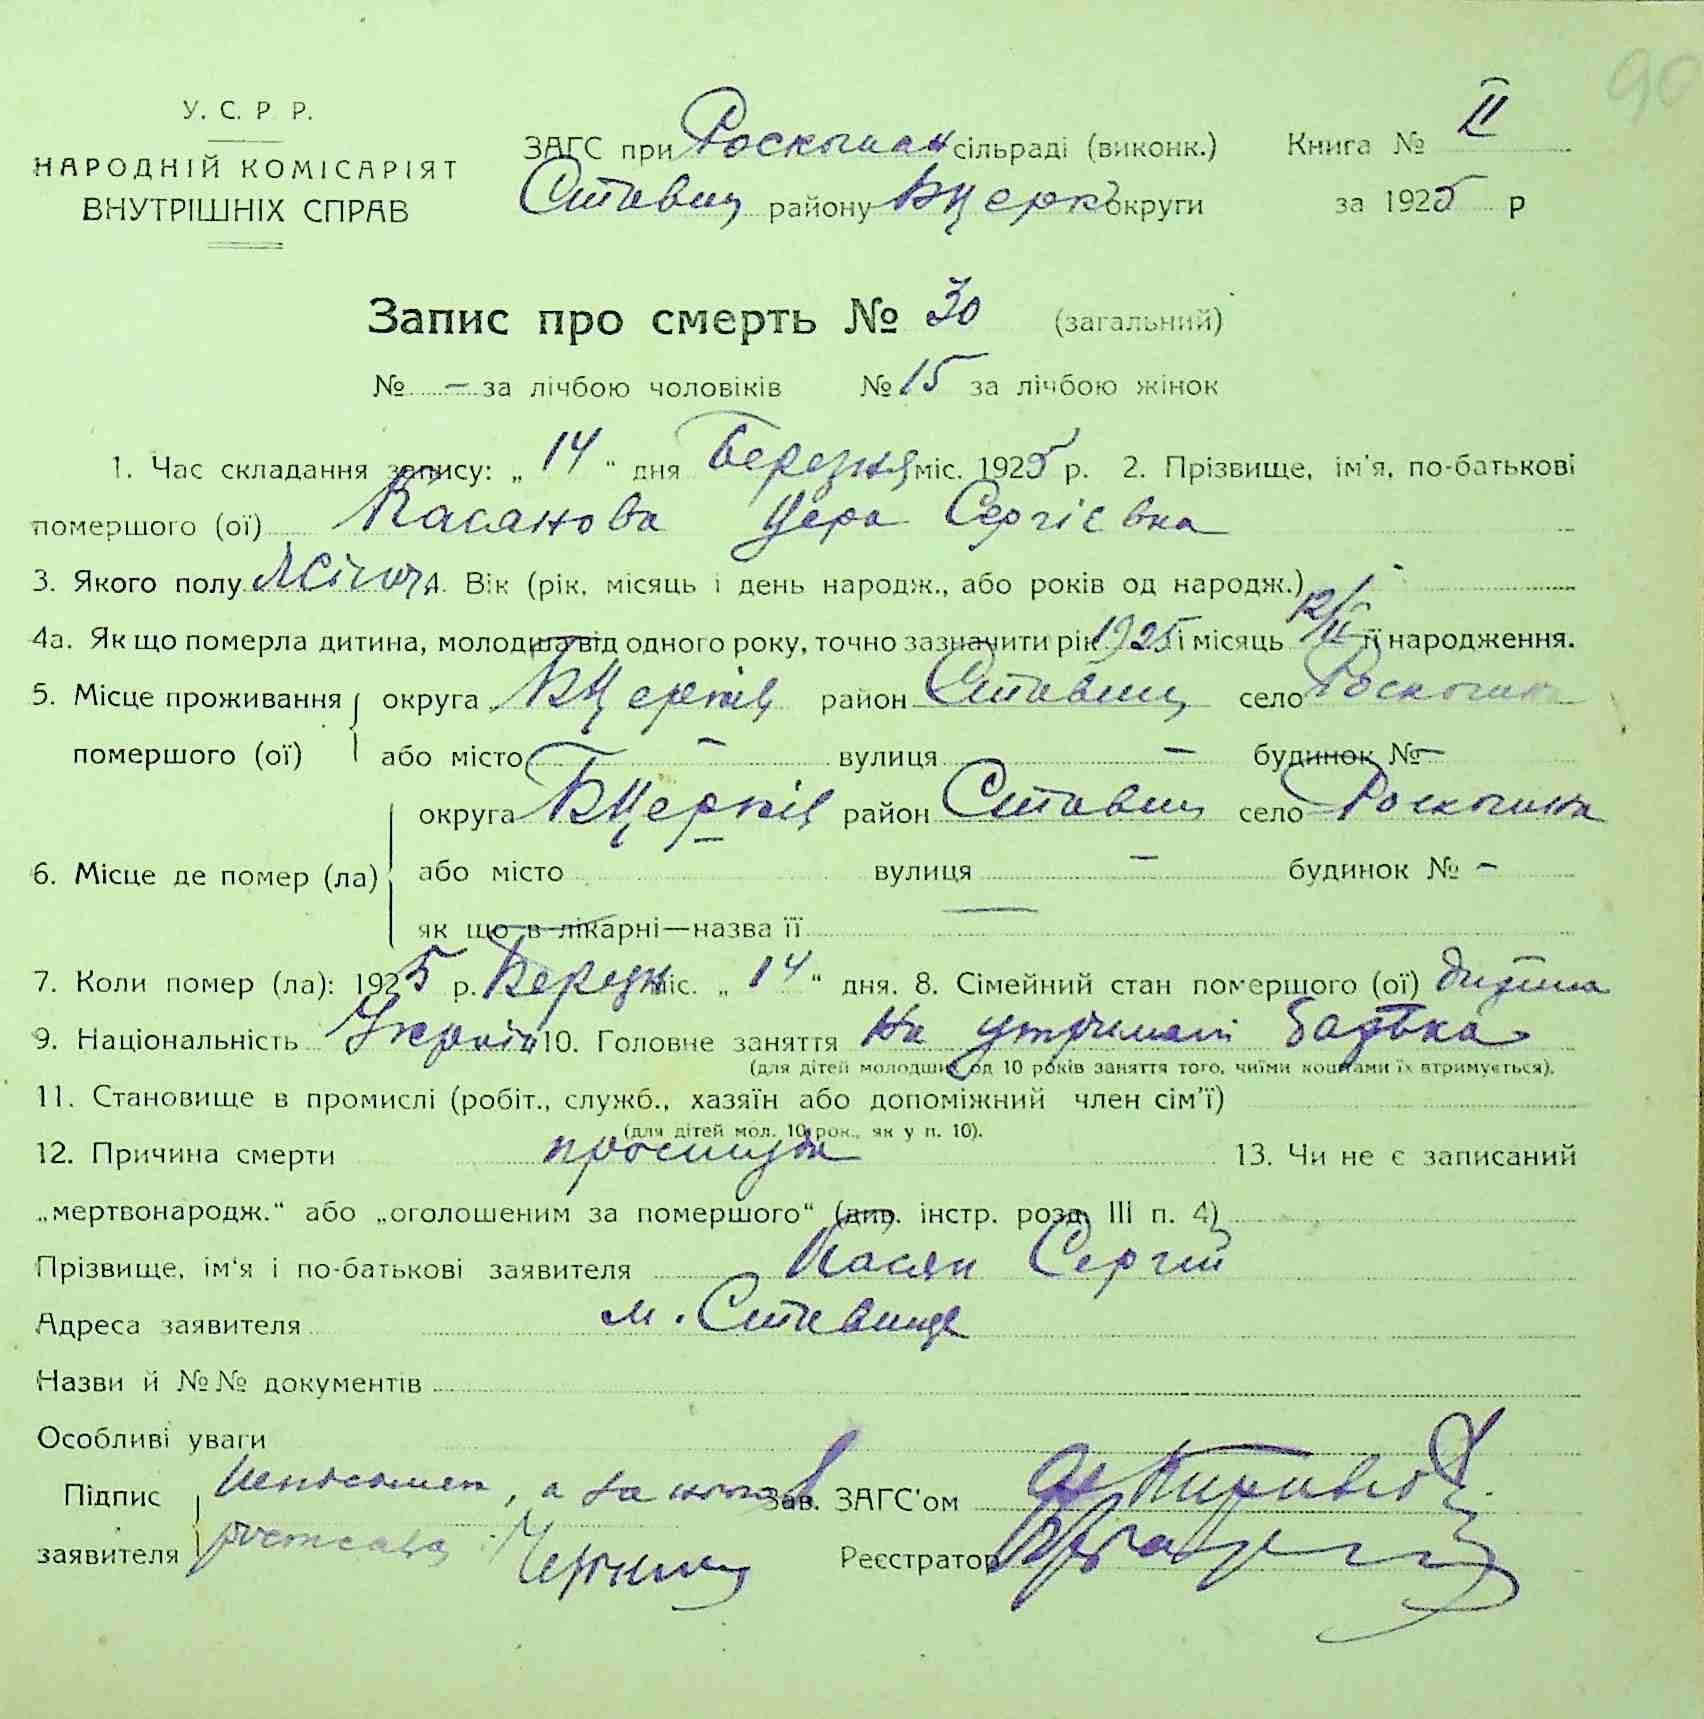 90
У. С. Р. Р.
НАРОДНІЙ КОМІСАРІЯТ
ВНУТРІШНІХ СПРАВ
ЗАГС при Роскошан сільраді (виконк.) Книга № II
Ставищ району БЦерків округи за 1925 р
Запис про смерть № 30 (загальний)
№ — за лічбою чоловіків № 15 за лічбою жінок
1. Час складання запису: „ 14 “ дня Березня міс. 1925 р. 2. Прізвище, ім'я, по-батькові
помершого (ої) Касянова Сергієвна
3. Якого полу Жіноч 4. Вік (рік, місяць і день народж., або років од народж.)
4а. Як що померла дитина, молодша від одного року, точно зазначити рік 1925 і місяць 12/II її народження.
5. Місце проживання округа БЦерків район Ставищ село Роскошна
помершого (ої) або місто — вулиця — будинок № —
округа БЦерків район Ставищ село Роскошна
6. Місце де помер (ла) або місто — вулиця — будинок № —
як що в лікарні—назва її —
7. Коли помер (ла): 1925 р. Березня міс. „ 14 “ дня. 8. Сімейний стан помершого (ої) дитина
9. Національність Україн 10. Головне заняття на утримані батька
(для дітей молодших од 10 років заняття того, чиїми коштами їх втримується).
11. Становище в промислі (робіт., служб., хазяїн або допоміжний член сім'ї)
(для дітей мол. 10 рок., як у п. 10).
12. Причина смерти простуда 13. Чи не є записаний
„мертвонародж.“ або „оголошеним за помершого“ (див. інстр. розд. III п. 4)
Прізвище, ім'я і по-батькові заявителя Касян Сергій
Адреса заявителя м. Ставище
Назви й №№ документів
Особливі уваги
Підпис неписьмен, а за него Зав. ЗАГС'ом
заявителя Реєстратор